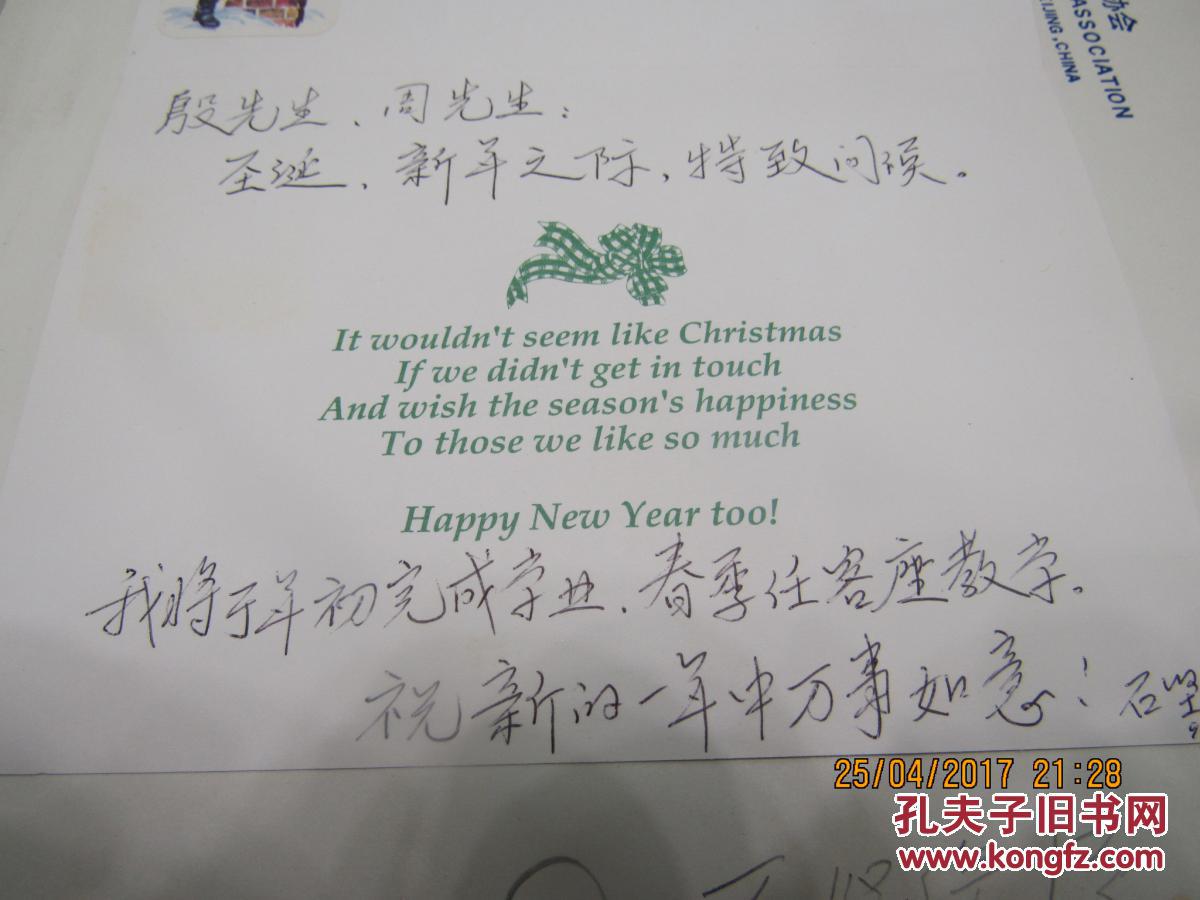 协会
ASSOCIATION
IJING, CHINA
殷先生、周先生：
圣诞、新年之际，特致问候。
It wouldn't seem like Christmas
If we didn't get in touch
And wish the season's happiness
To those we like so much
Happy New Year too!
我将于年初完成学业、春季任客座教学。
祝新的一年中万事如意！石坚
25/04/2017 21:28
孔夫子旧书网
www.kongfz.com